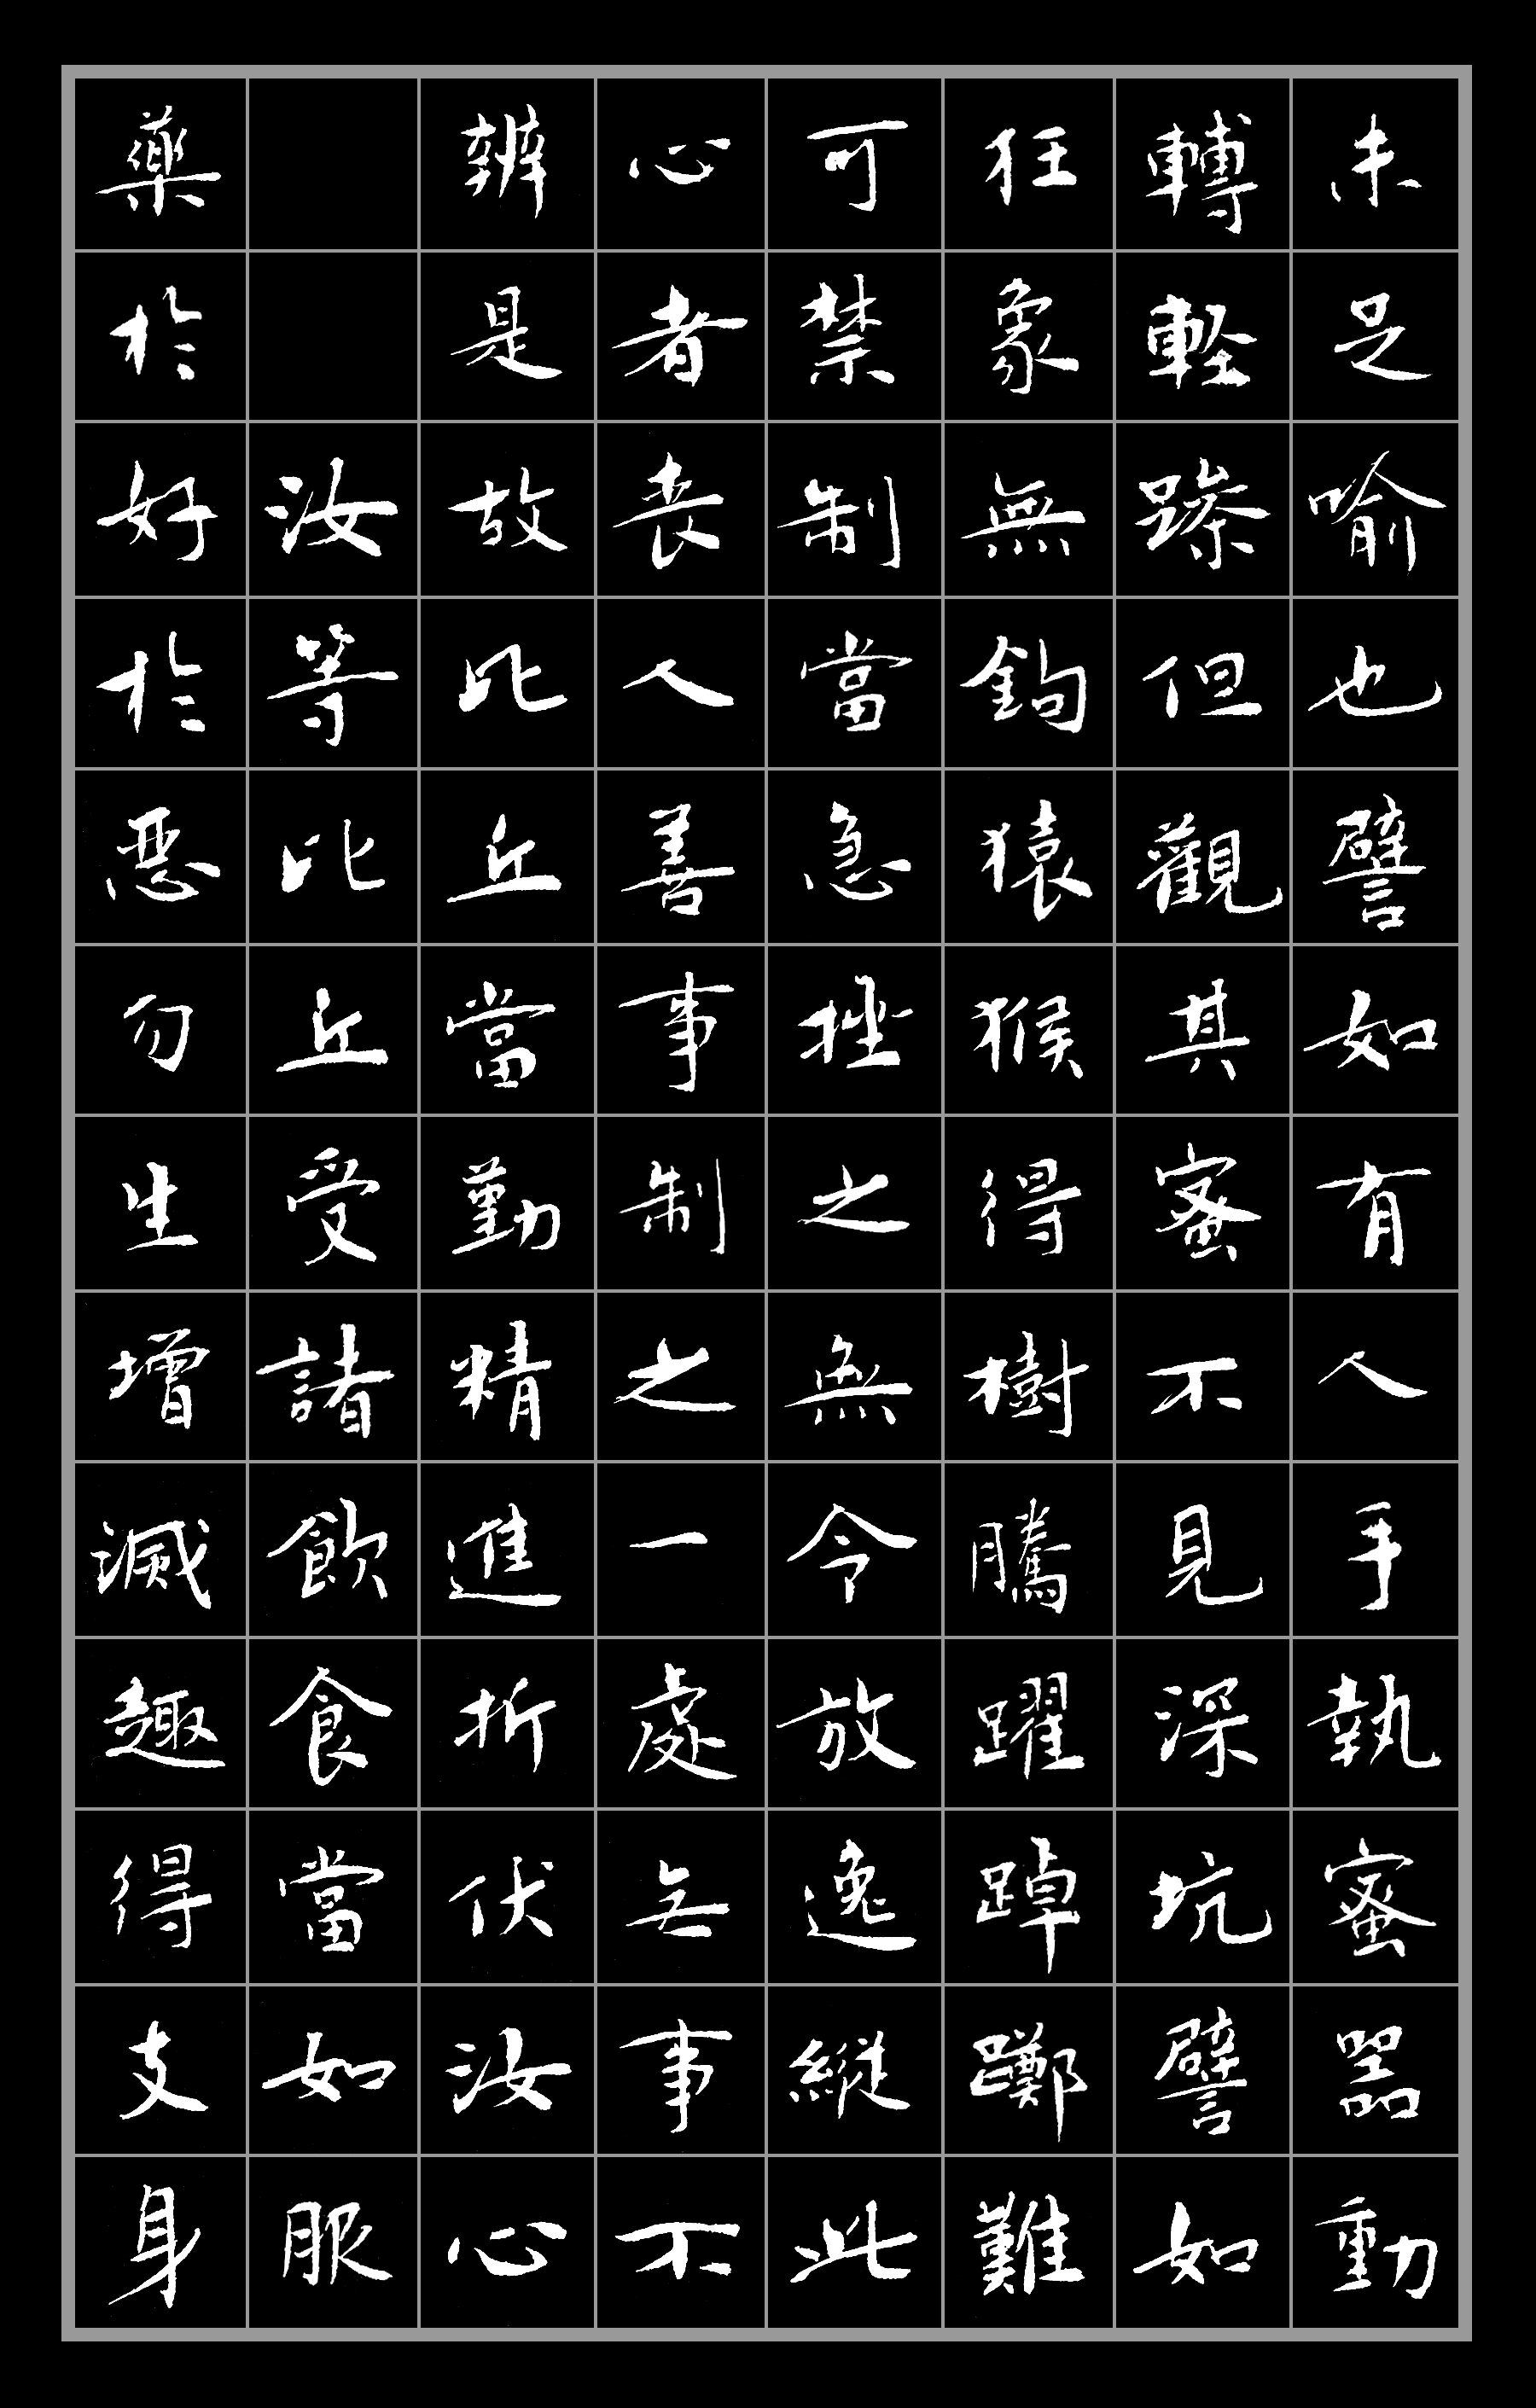 未足喻也譬如有人手執蜜器動
轉輕躁但觀其蜜不見深坑譬如
狂象無鉤猿猴得樹騰躍踔躑難
可禁制當急挫之無令放逸縱此
心者喪人善事制之一處无事不
辨是故比丘當勤精進折伏汝心
汝等比丘受諸飲食當如服
藥於好於惡勿生增減趣得支身